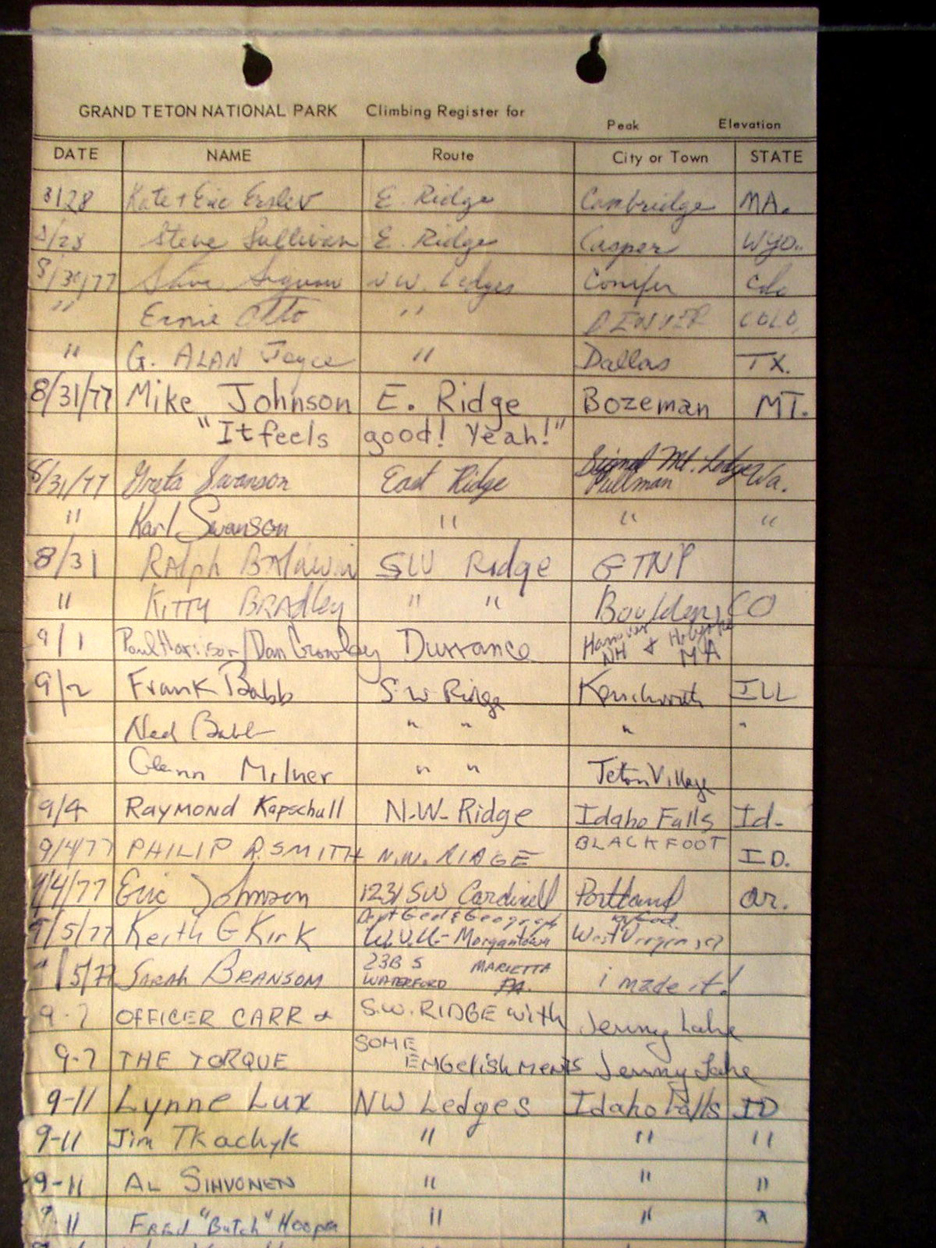 GRAND TETON NATIONAL PARK Climbing Register for Peak Elevation
DATE NAME Route City or Town STATE
8/28 Kate + Eric Erslev E. Ridge Cambridge MA.
8/28 Steve Sullivan E. Ridge Casper WYO.
8/30/77 Steve N.W. Ledges Conifer Colo
" Ernie Otto " DENVER COLO.
" G. ALAN Joyce " Dallas TX.
8/31/77 Mike Johnson E. Ridge Bozeman MT.
"It feels good! Yeah!"
8/31/77 Greta Swanson East Ridge Signal Mt. Lodge Pullman Wa.
" Karl Swanson " " "
8/31 Ralph Baldwin SW Ridge GTNP
" KITTY BRADLEY " " Boulder, CO
9/1 Paul Harrison/Dan Crowley Durrance Hanover NH & Holyoke MA
9/2 Frank Babb S.W. Ridge Kenilworth ILL
Ned Babb " " " "
Glenn Milner " " Teton Village
9/4 RAYMOND Kapschull N.W. Ridge Idaho Falls Id.
9/4/77 PHILIP R. SMITH N.W. RIDGE BLACKFOOT ID.
9/4/77 Eric Johnson 1231 SW Cardinell Portland Or.
9/5/77 Keith G Kirk Dept Geol & Geograph W.V.U. - Morgantown West Virginia
9/5/77 SARAH BRANSOM 23B S WATERFORD MARIETTA PA. i made it!
9-7 OFFICER CARR & S.W. RIDGE with Jenny Lake
9-7 THE TORQUE SOME EMBELISHMENTS Jenny Lake
9-11 Lynne Lux NW Ledges Idaho Falls ID
9-11 Jim Tkachyk " " "
9-11 AL SIHVONEN " " "
9-11 FRED "Butch" Hooper " " "